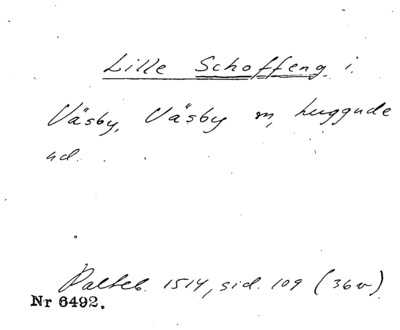 Lille Schoffeng i.
Väsby, Väsby sn, Luggude
hd.
Palteb. 1514, sid. 109 (36v)
Nr 6492.